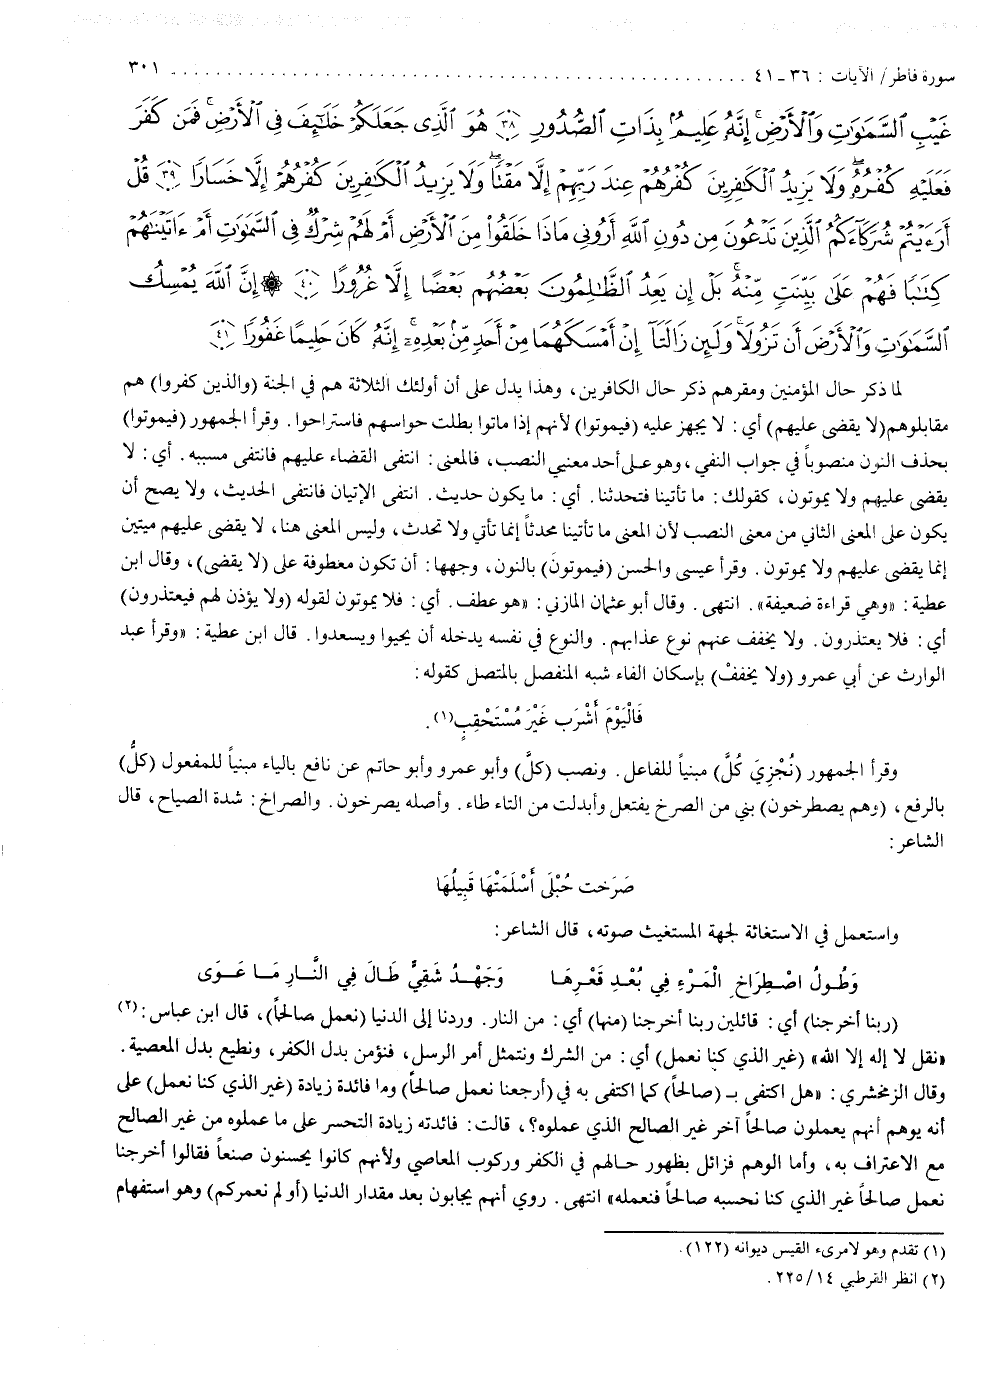 سورة فاطر/ الآيات : ٣٦-٤١ ........................................................ ٣٠١
غَيْبِ ٱلسَّمَٰوَٰتِ وَٱلْأَرْضِ ۚ إِنَّهُۥ عَلِيمٌۢ بِذَاتِ ٱلصُّدُورِ ﴿٣٨﴾ هُوَ ٱلَّذِى جَعَلَكُمْ خَلَٰٓئِفَ فِى ٱلْأَرْضِ ۚ فَمَن كَفَرَ
فَعَلَيْهِ كُفْرُهُۥ ۖ وَلَا يَزِيدُ ٱلْكَٰفِرِينَ كُفْرُهُمْ عِندَ رَبِّهِمْ إِلَّا مَقْتًا ۖ وَلَا يَزِيدُ ٱلْكَٰفِرِينَ كُفْرُهُمْ إِلَّا خَسَارًا ﴿٣٩﴾ قُلْ
أَرَءَيْتُمْ شُرَكَآءَكُمُ ٱلَّذِينَ تَدْعُونَ مِن دُونِ ٱللَّهِ أَرُونِى مَاذَا خَلَقُوا۟ مِنَ ٱلْأَرْضِ أَمْ لَهُمْ شِرْكٌ فِى ٱلسَّمَٰوَٰتِ أَمْ ءَاتَيْنَٰهُمْ
كِتَٰبًا فَهُمْ عَلَىٰ بَيِّنَتٍ مِّنْهُ ۚ بَلْ إِن يَعِدُ ٱلظَّٰلِمُونَ بَعْضُهُم بَعْضًا إِلَّا غُرُورًا ﴿٤٠﴾ ۞ إِنَّ ٱللَّهَ يُمْسِكُ
ٱلسَّمَٰوَٰتِ وَٱلْأَرْضَ أَن تَزُولَا ۚ وَلَئِن زَالَتَآ إِنْ أَمْسَكَهُمَا مِنْ أَحَدٍ مِّنۢ بَعْدِهِۦٓ ۚ إِنَّهُۥ كَانَ حَلِيمًا غَفُورًا ﴿٤١﴾
لما ذكر حال المؤمنين ومقرهم ذكر حال الكافرين، وهذا يدل على أن أولئك الثلاثة هم في الجنة (والذين كفروا) هم
مقابلوهم(لا يقضى عليهم) أي: لا يجهز عليه (فيموتوا) لأنهم إذا ماتوا بطلت حواسهم فاستراحوا. وقرأ الجمهور (فيموتوا)
بحذف النون منصوباً في جواب النفي، وهو على أحد معنيي النصب، فالمعنى: انتفى القضاء عليهم فانتفى مسببه. أي: لا
يقضى عليهم ولا يموتون، كقولك: ما تأتينا فتحدثنا. أي: ما يكون حديث. انتفى الإتيان فانتفى الحديث، ولا يصح أن
يكون على المعنى الثاني من معنى النصب لأن المعنى ما تأتينا محدثاً إنما تأتي ولا تحدث، وليس المعنى هنا، لا يقضى عليهم ميتين
إنما يقضى عليهم ولا يموتون. وقرأ عيسى والحسن (فيموتونَ) بالنون، وجهها: أن تكون معطوفة على (لا يقضى)، وقال ابن
عطية: «وهي قراءة ضعيفة». انتهى. وقال أبو عثمان المازني: «هو عطف. أي: فلا يموتون لقوله (ولا يؤذن لهم فيعتذرون)
أي: فلا يعتذرون. ولا يخفف عنهم نوع عذابهم. والنوع في نفسه يدخله أن يحيوا ويسعدوا. قال ابن عطية: «وقرأ عبد
الوارث عن أبي عمرو (ولا يخففْ) بإسكان الفاء شبه المنفصل بالمتصل كقوله:
فَالْيَوْمَ أَشْرَب غَيْرَ مُسْتَحْقِبٍ(١).
وقرأ الجمهور (نُجْزِيَ كُلَّ) مبنياً للفاعل. ونصب (كلَّ) وأبو عمرو وأبو حاتم عن نافع بالياء مبنياً للمفعول (كلُّ)
بالرفع، (وهم يصطرخون) بني من الصرخ يفتعل وأبدلت من التاء طاء. وأصله يصرخون. والصراخ: شدة الصياح، قال
الشاعر:
صَرَخت حُبْلَى أَسْلَمَتْهَا قَبِيلُهَا
واستعمل في الاستغاثة لجهة المستغيث صوته، قال الشاعر:
وَطُولُ اصْطِرَاخِ الْمَرْءِ فِي بُعْدِ قَعْرِهَا وَجَهْدُ شَقِيٍّ طَالَ فِي النَّارِ مَا عَوَى
(ربنا أخرجنا) أي: قائلين ربنا أخرجنا (منها) أي: من النار. وردنا إلى الدنيا (نعمل صالحاً)، قال ابن عباس:(٢)
«نقل لا إله إلا الله» (غير الذي كنا نعمل) أي: من الشرك ونتمثل أمر الرسل، فنؤمن بدل الكفر، ونطيع بدل المعصية.
وقال الزمخشري: «هل اكتفى بـ (صالحاً) كما اكتفى به في (أرجعنا نعمل صالحاً) وما فائدة زيادة (غير الذي كنا نعمل) على
أنه يوهم أنهم يعملون صالحاً آخر غير الصالح الذي عملوه؟، قالت: فائدته زيادة التحسر على ما عملوه من غير الصالح
مع الاعتراف به، وأما الوهم فزائل بظهور حالهم في الكفر وركوب المعاصي ولأنهم كانوا يحسنون صنعاً فقالوا أخرجنا
نعمل صالحاً غير الذي كنا نحسبه صالحاً فنعمله» انتهى. روي أنهم يجابون بعد مقدار الدنيا (أو لم نعمركم) وهو استفهام
(١) تقدم وهو لامرىء القيس ديوانه (١٢٢).
(٢) انظر القرطبي ٢٢٥/١٤.